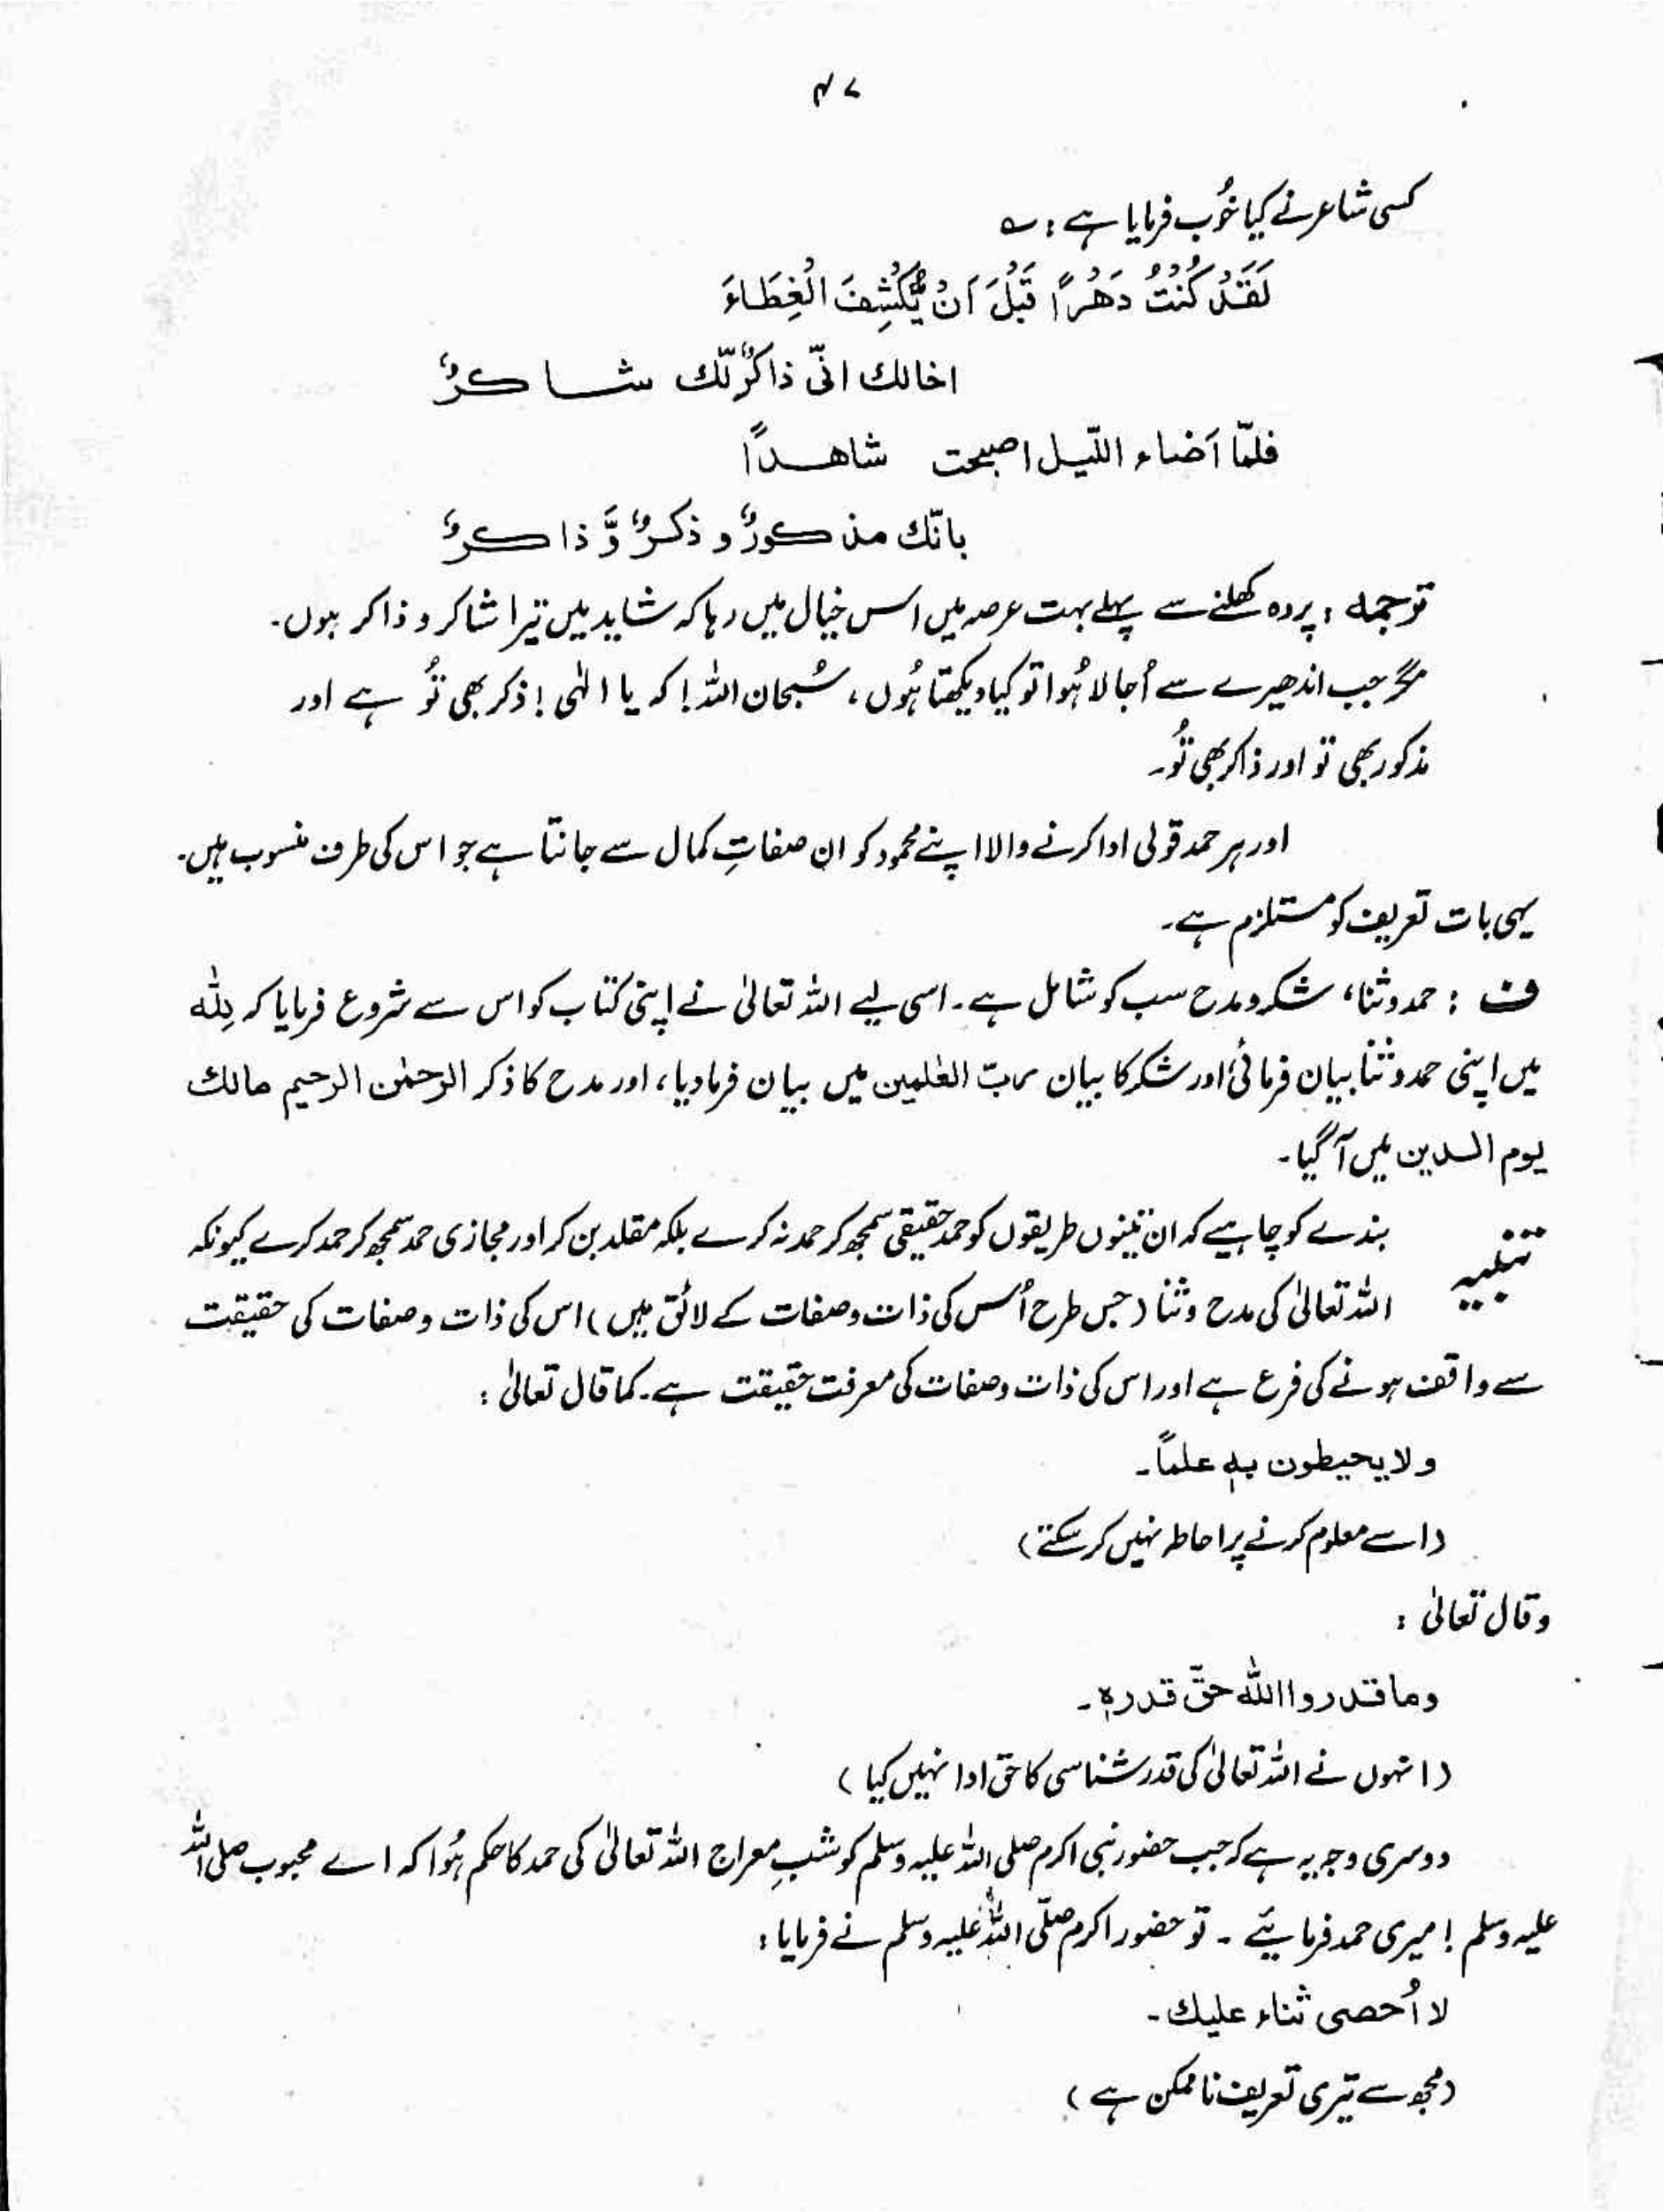 ۴۷
کسی شاعر نے کیا خُوب فرمایا ہے : ؎
لَقَدْ كُنْتُ دَهْرًا قَبْلَ اَنْ يُّكْشِفَ الْغِطَاءَ
اخالك انّی ذاکرٌ لّك شاكرٌ
فلمّا اَضاء اللّيل اصبحت شاهدًا
بانّك مذكورٌ و ذكرٌ وَّ ذاكرٌ
ترجمہ : پردہ کھلنے سے پہلے بہت عرصہ میں اس خیال میں رہا کہ شاید میں تیرا شاکر و ذاکر ہوں۔
مگر جب اندھیرے سے اُجالا ہُوا تو کیا دیکھتا ہُوں ، سُبحان اللہ! کہ یا الٰہی ! ذکر بھی تُو ہے اور
مذکور بھی تو اور ذاکر بھی تُو۔
اور ہر حمد قولی ادا کرنے والا اپنے محمود کو ان صفاتِ کمال سے جانتا ہے جو اس کی طرف منسوب ہیں۔
یہی بات تعریف کو مستلزم ہے۔
ف : حمد و ثنا، شکر و مدح سب کو شامل ہے۔ اسی لیے اللہ تعالیٰ نے اپنی کتاب کو اس سے شروع فرمایا کہ للّٰہ
میں اپنی حمد و ثنا بیان فرمائی اور شکر کا بیان ربّ العٰلمین میں بیان فرما دیا ، اور مدح کا ذکر الرحمٰن الرحیم مالك
یوم الدین میں آ گیا۔
تنبیہ بندے کو چاہیے کہ ان تینوں طریقوں کو حمد حقیقی سمجھ کر حمد نہ کرے بلکہ مقلد بن کر اور مجازی حمد سمجھ کر حمد کرے کیونکہ
اللہ تعالیٰ کی مدح و ثنا (جس طرح اُس کی ذات و صفات کے لائق ہیں) اس کی ذات و صفات کی حقیقت
سے واقف ہونے کی فرع ہے اور اس کی ذات و صفات کی معرفت حقیقت ہے۔ کما قال تعالیٰ :
ولا يحيطون بهٖ علمًا۔
(اسے معلوم کرنے پر احاطہ نہیں کر سکتے)
وقال تعالیٰ :
وما قدروا اللّٰه حقّ قدرهٖ۔
(انہوں نے اللہ تعالیٰ کی قدر شناسی کا حق ادا نہیں کیا)
دوسری وجہ یہ ہے کہ جب حضور نبی اکرم صلی اللہ علیہ وسلم کو شبِ معراج اللہ تعالیٰ کی حمد کا حکم ہُوا کہ اے محبوب صلی اللہ
علیہ وسلم ! میری حمد فرمائیے ۔ تو حضور اکرم صلّی اللہ علیہ وسلم نے فرمایا :
لا اُحصی ثناء علیك۔
(مجھ سے تیری تعریف ناممکن ہے)